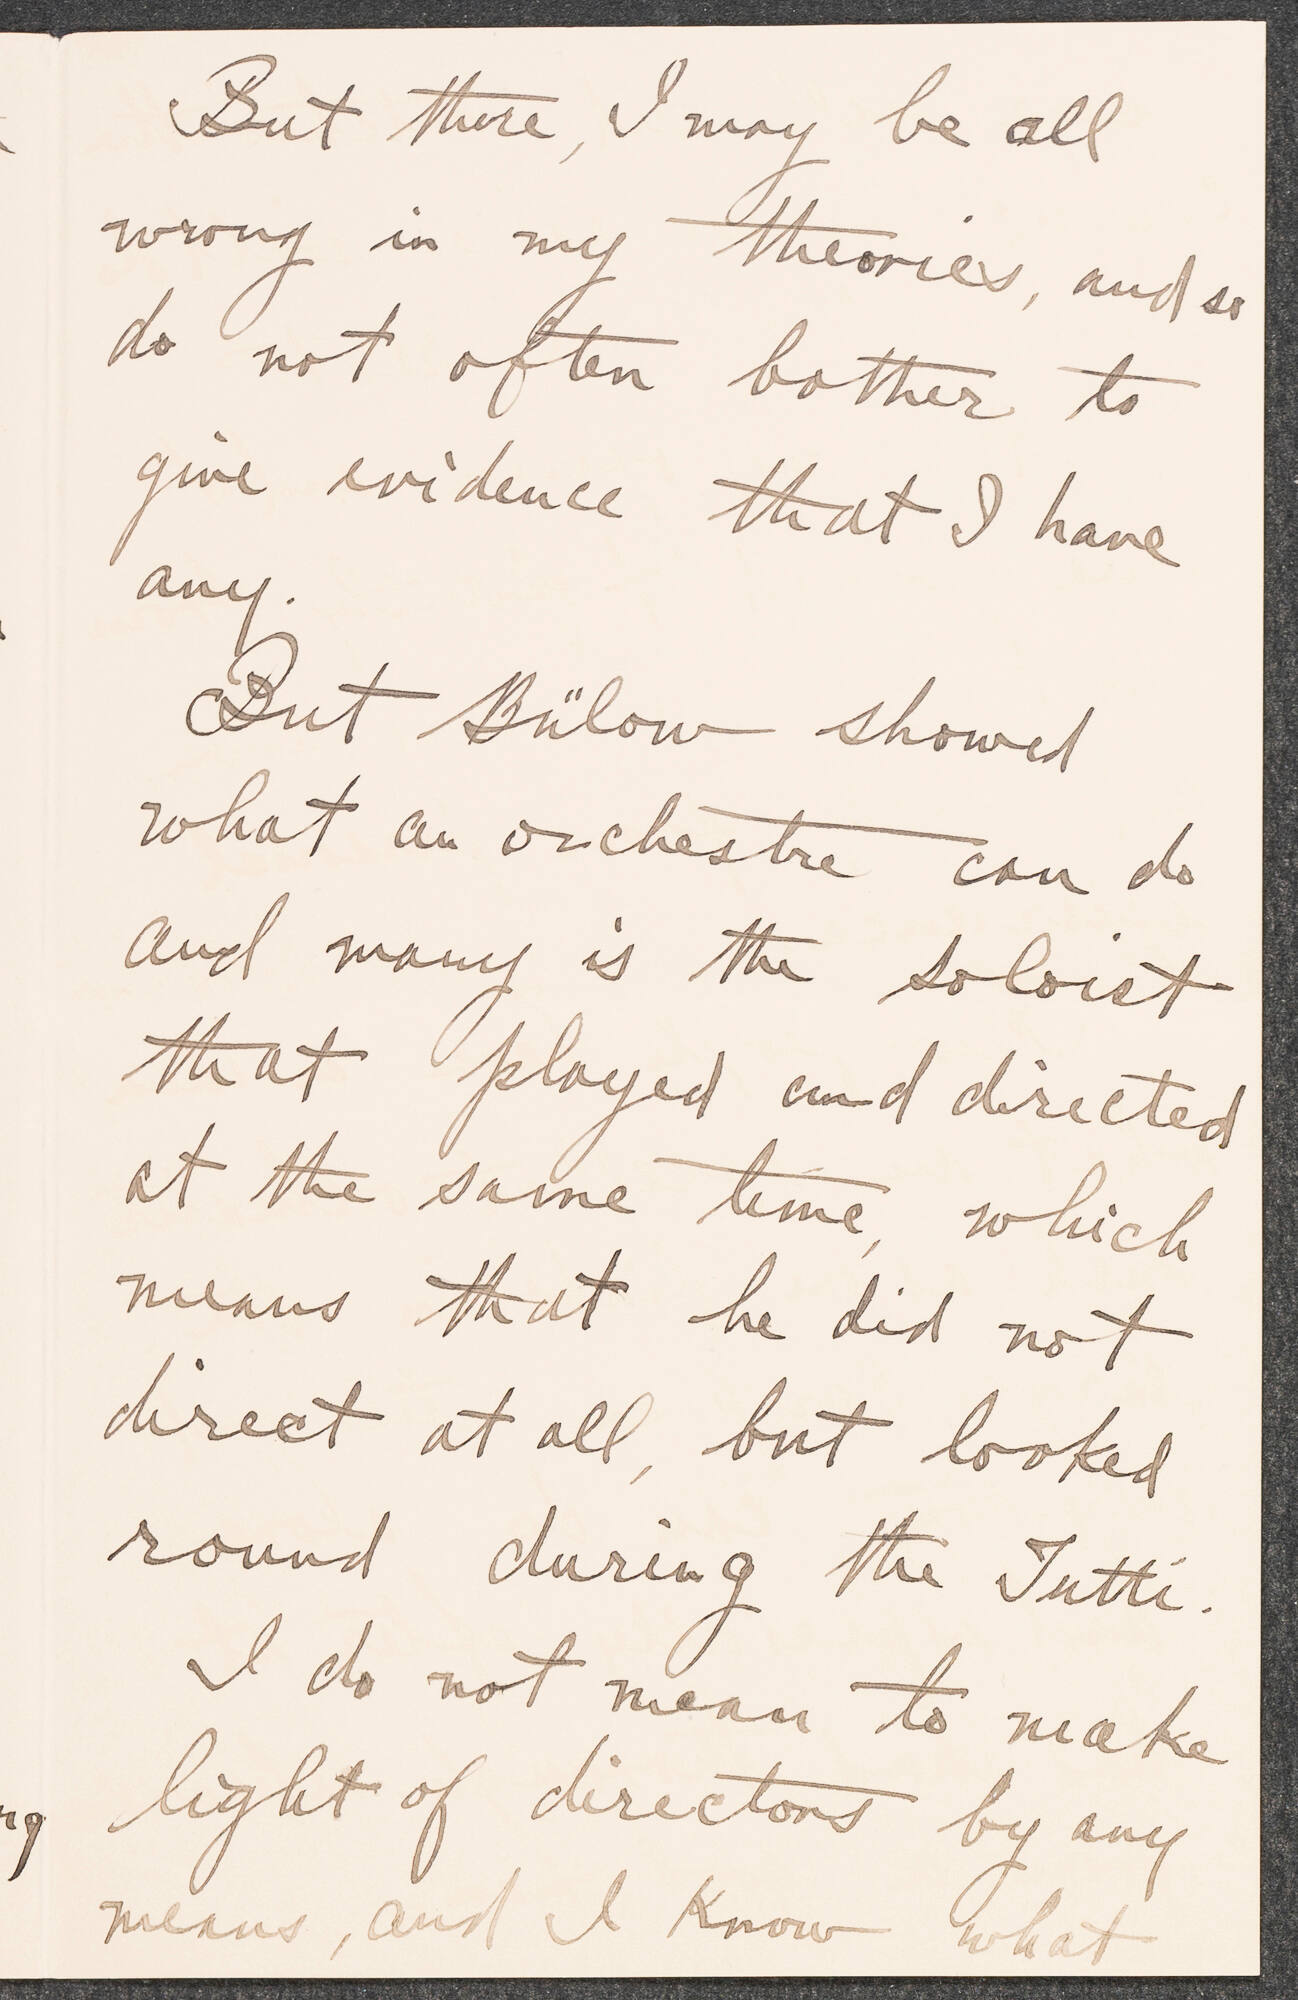 But there, I may be all
wrong in my theories, and so
do not often bother to
give evidence that I have
any.
But Bülow showed
what an orchestre can do
and many is the soloist
that played and directed
at the same time, which
means that he did not
direct at all, but looked
round during the Tutti.
I do not mean to make
light of directors by any
means, and I know what